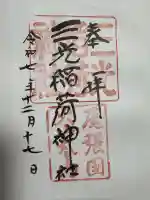 奉拝
三光稲荷神社
令和七年十二月十七日
尾張国